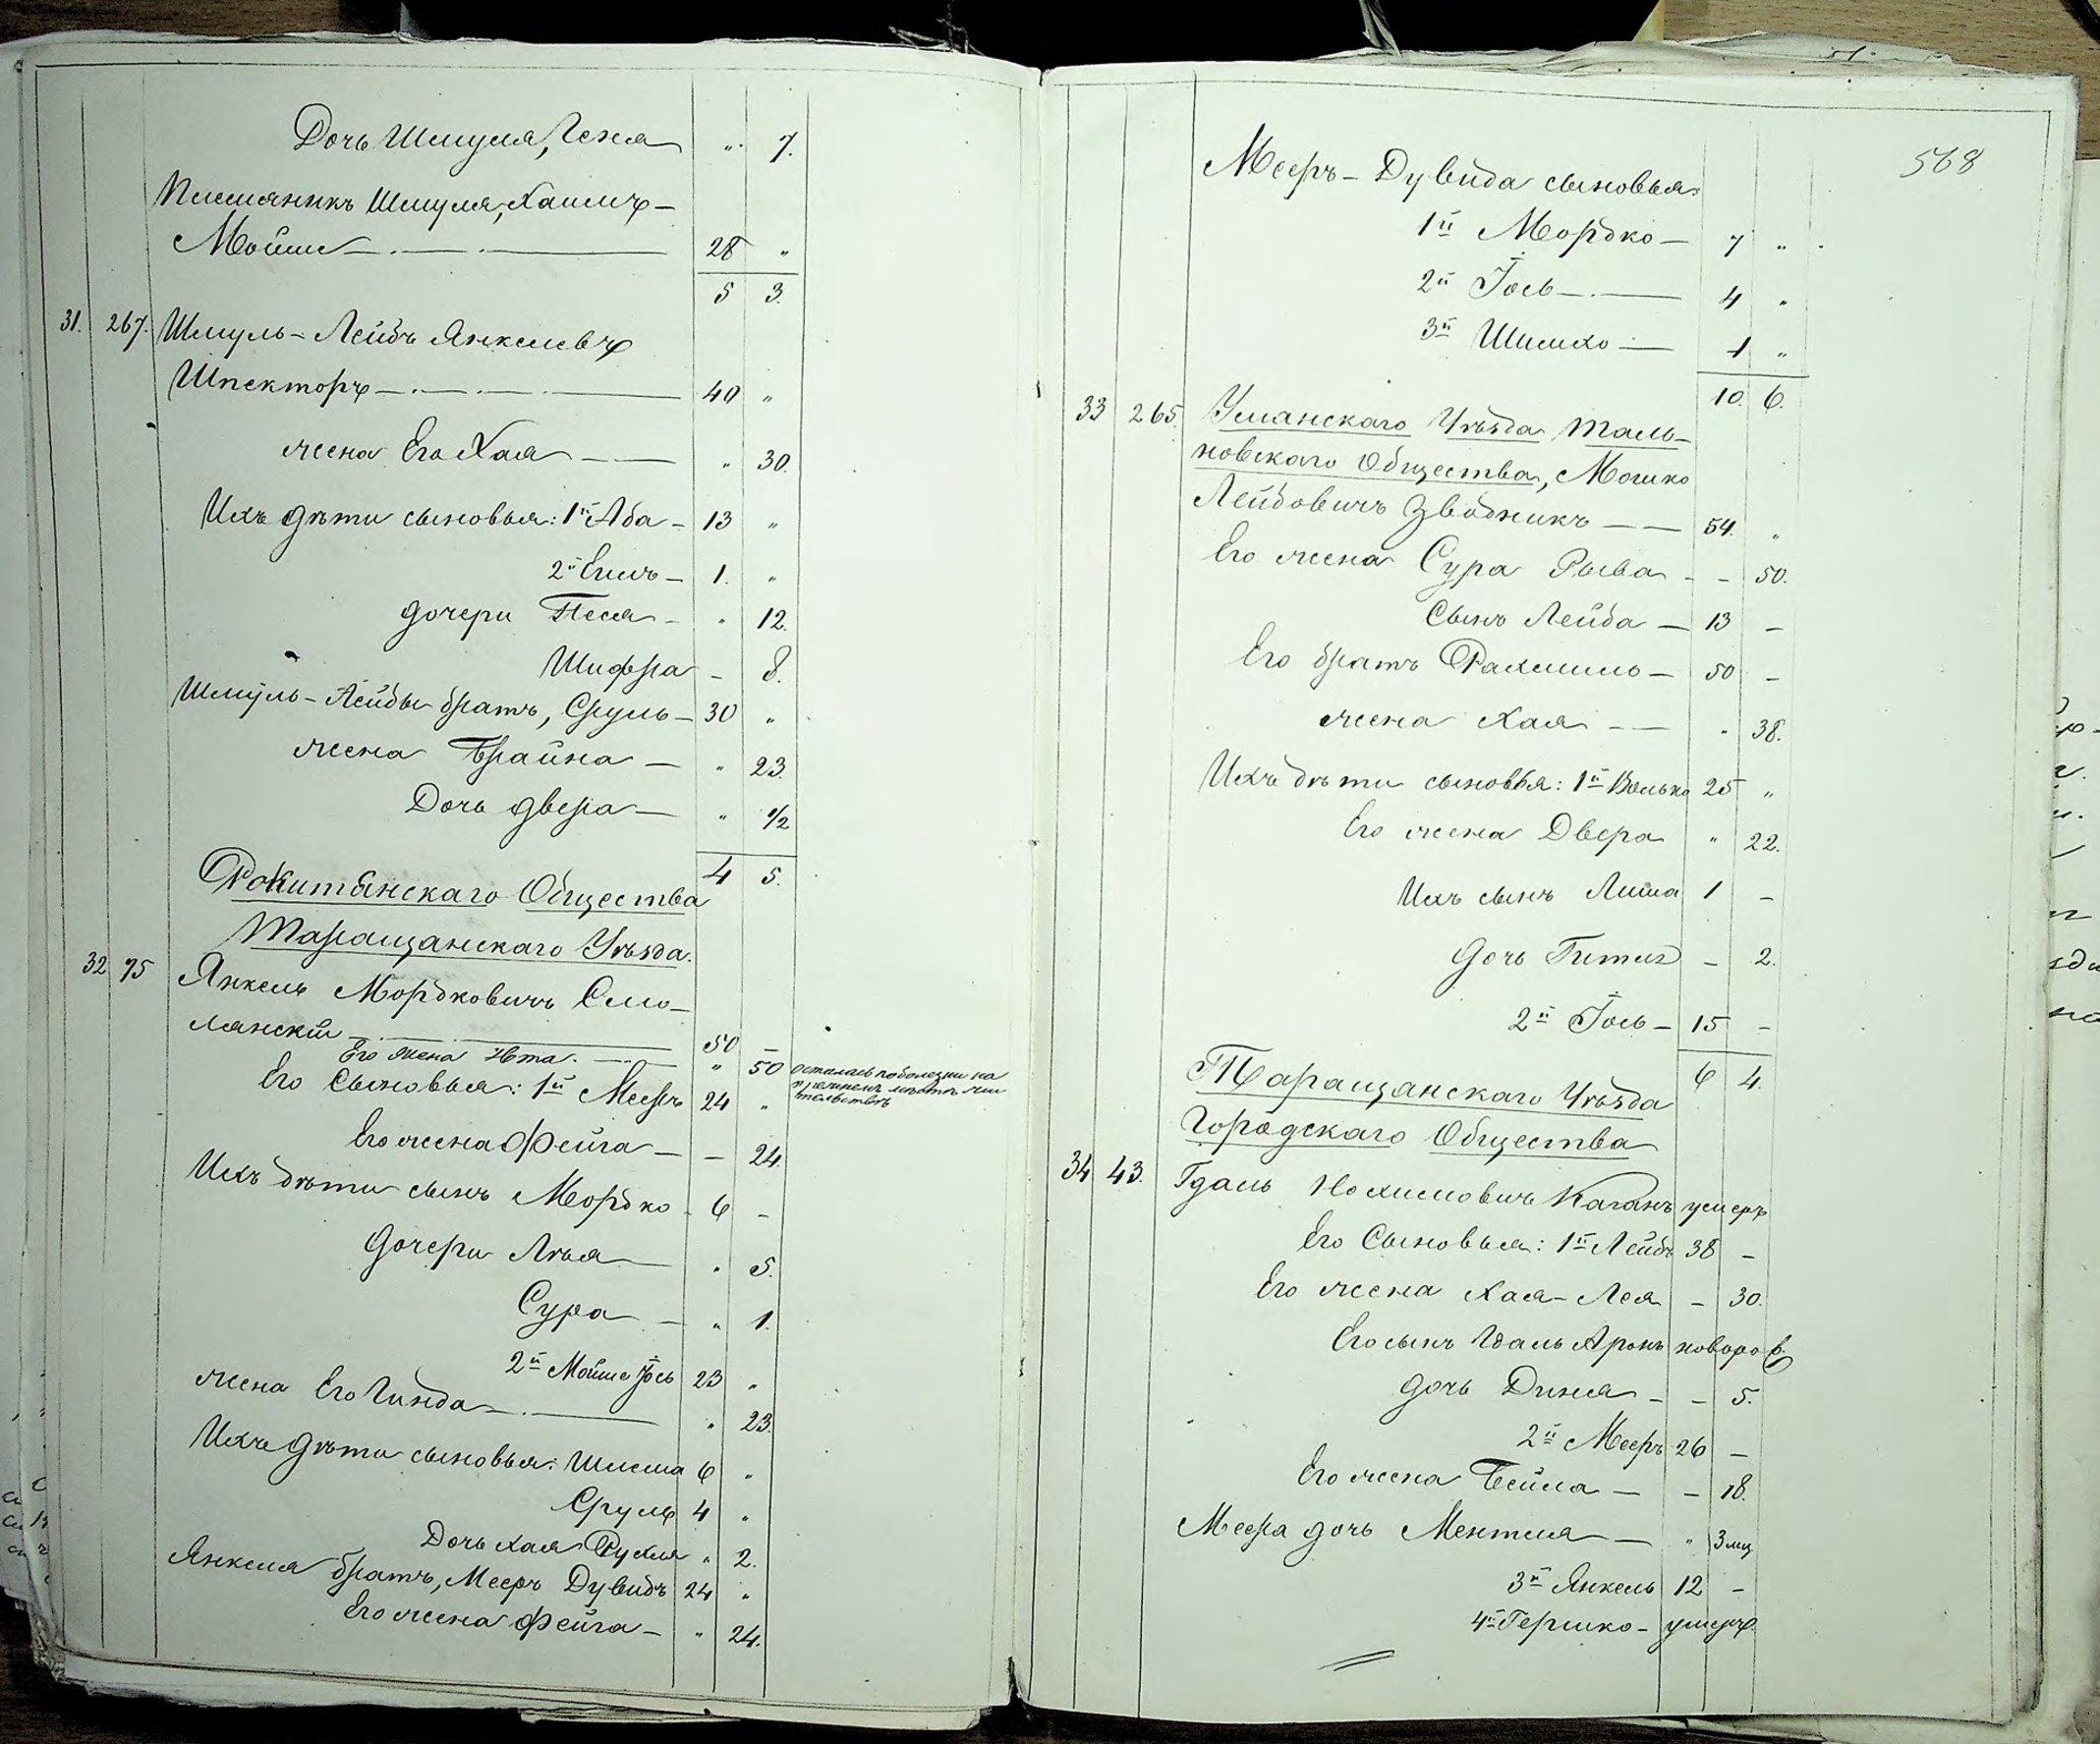 Дочь Шмуля, Геня " 7.
Племяникъ Шмуля, Хаимъ-
Мойше 28 "
5 3.
31. 267. Шмуль-Лейбъ Янкелевъ
Шпекторъ 40 "
жена Его Хая " 30.
Ихъ дѣти сыновья: 1й Аба - 13 "
2й Елиъ - 1. "
дочери Песя - " 12.
Шифра - 8.
Шмуль-Лейбы братъ, Сруль - 30 "
жена Брайна - " 23.
Дочь двера - " 1/2
4 5.
Рокитянскаго Общества
Таращанскаго Уѣзда.
32 75 Янкель Мордковичъ Смо-
лянскій 50 –
Его жена Нота. " 50 осталась по болезни на
прежнемъ мѣстѣ жи
тельствѣ
Его Сыновья: 1й Мееръ 24 "
Его жена Фейга - – 24.
Ихъ дѣти сынъ Мордко - 6 –
дочери Лѣя " 5.
Сура - " 1.
2й Мойше Іось 23 "
жена Его Гинда " 23.
Ихъ дѣти сыновья: Шлема 6 "
Сруль 4 "
Дочь Хая Рухля " 2.
Янкеля братъ, Мееръ Дувидъ 24 "
Его жена Фейга - " 24.
568
Мееръ-Дувида сыновья:
1й Мордко - 7 "
2й Іось - 4 "
3й Шимхо - 1 "
10. 6.
33 265. Уманскаго Уѣзда Таль-
новскаго Общества, Мошко
Лейбовичъ Зводникъ 54. "
Его жена Сура Рыва - – 50.
Сынъ Лейба - 13 –
Его братъ Рахмиль - 50 –
жена Хая " 38.
Ихъ дѣти сыновья: 1й Волько 25 "
Его жена Двера " 22.
Ихъ сынъ Лиша 1 –
дочь Гитля – 2.
2й Іось - 15 –
6 4.
Таращанскаго Уѣзда
Городскаго Общества
34 43. Гдаль Нохимовичъ Каганъ умеръ
Его Сыновья: 1й Лейбъ 38 –
Его жена Хая-Лея – 30.
Его сынъ Гдаль Аронъ новорож.
дочь Диня - – 5.
2й Мееръ 26 –
Его жена Бейла - – 18.
Меера дочь Ментля " 3 мц
3й Янкель 12 –
4й Гершко - умеръ.